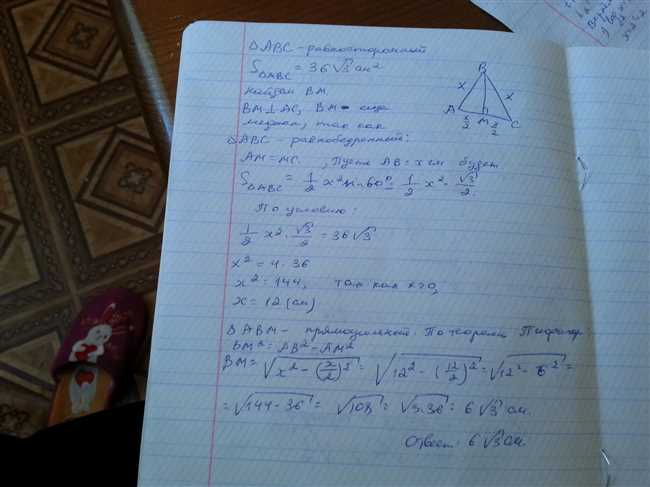 ΔABC - равносторонний
S ΔABC = 36√3 см²
найдем BM
BM⊥AC, BM - еще
медиана, так как
ΔABC - равнобедренный:
AM = MC. , Пусть AB = x см будет
S ΔABC = 1/2 x² sin 60° = 1/2 x² · √3/2.
По условию:
1/2 x² · √3/2 = 36√3
x² = 4 · 36
x² = 144, так как x>0,
x = 12 (см)
ΔABM - прямоугольный. По теореме Пифагора:
BM² = AB² - AM²
BM = √(x² - (x/2)²) = √(12² - (12/2)²) = √(12² - 6²) =
= √(144 - 36) = √108 = √(3·36) = 6√3 см.
Ответ: 6√3 см.
B
x x
A x/2 M x/2 C